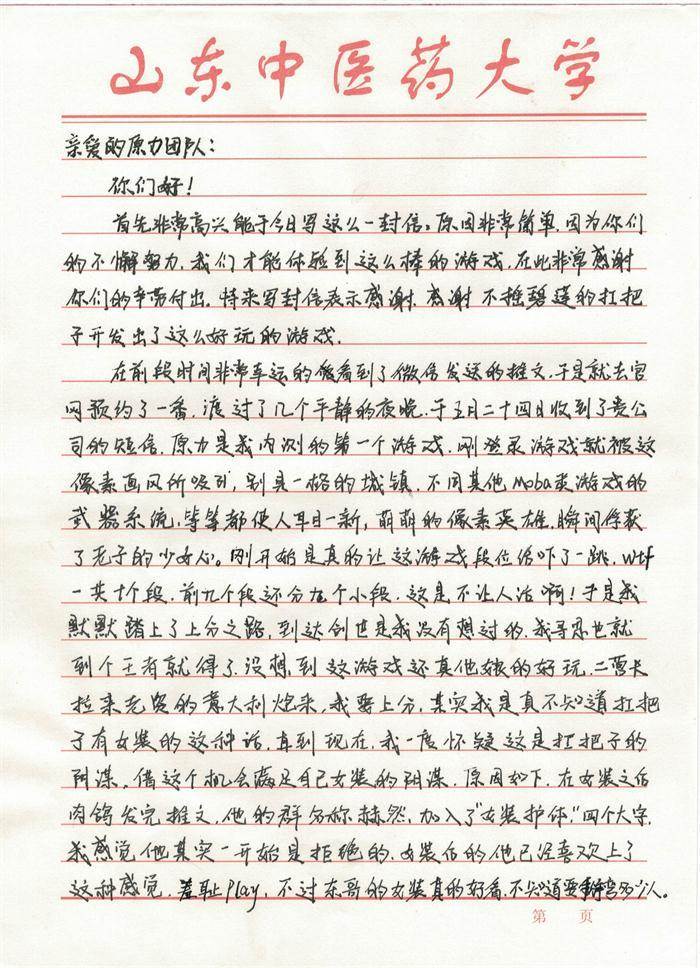 山东中医药大学
亲爱的原力团队：
你们好！
首先非常高兴能于今日写这么一封信。原因非常简单，因为你们
的不懈努力，我们才能体验到这么棒的游戏，在此非常感谢
你们的辛劳付出，特来写封信表示感谢，感谢不推碧莲的扛把
子开发出了这么好玩的游戏.
在前段时间非常幸运的能看到了微信发送的推文，于是就去官
网预约了一番，渡过了几个平静的夜晚，于五月二十四日收到了贵公
司的短信，原力是我内测的第一个游戏，刚登录游戏就被这
像素画风所吸引，别具一格的城镇，不同其他Moba类游戏的
武器系统，等等都使人耳目一新，萌萌的像素英雄，瞬间俘获
了老子的少女心。刚开始是真的让这游戏段位给吓了一跳，wtf
一共十个段，前九个段还分五个小段，这是不让人活啊！于是我
默默踏上了上分之路，到达创世是我没有想过的，我寻思也就
到个王者就得了，没想到这游戏还真他娘的好玩，二营长
拉来老资的意大利炮来，我要上分，其实我是真不知道扛把
子有女装的这种话，直到现在，我一度怀疑这是扛把子的
阴谋，借这个机会满足自己女装的阴谋，原因如下，在女装之后
肉鸽发完推文，他的群名称赫然，加入了"女装护体"四个大字，
我感觉他其实一开始是拒绝的，女装后的他已经喜欢上了
这种感觉，羞耻Play，不过东哥的女装真的好看，不知道要掰弯多少人。
第 页